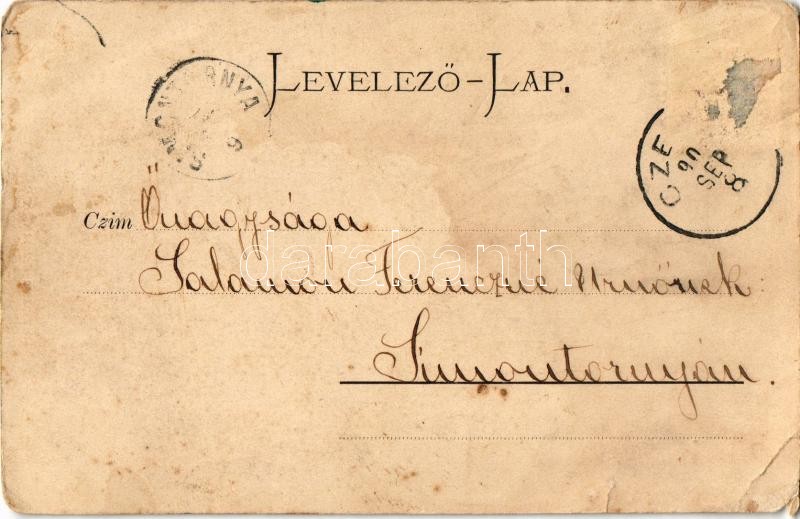 LEVELEZŐ-LAP.
CZE
90
SEP
8
9
Czim Őnagysága
Salamon Ferenczné Urnőnek
Simontornyán.
darabanth